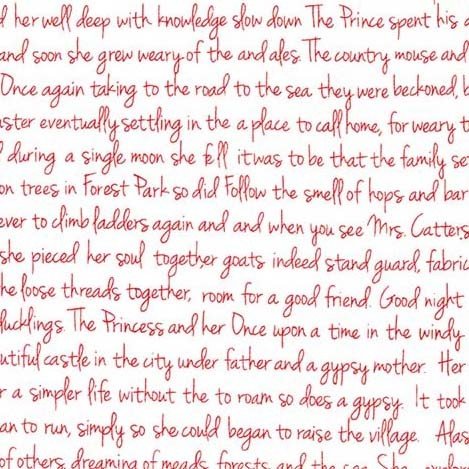 d her well deep with knowledge slow down The Prince spent his
and soon she grew weary of the and ales. The country mouse and
Once again taking to the road to the sea they were beckoned, b
aster eventually settling in the a place to call home, for weary t
during a single moon she fell it was to be that the family se
on trees in Forest Park so did Follow the smell of hops and bar
ever to climb ladders again and and when you see Mrs. Catters
she pieced her soul together, goats indeed stand guard, fabric
he loose threads together, room for a good friend. Good night
ducklings. The Princess and her Once upon a time in the windy
utiful castle in the city under father and a gypsy mother. Her
r a simpler life without the to roam so does a gypsy. It took
an to run, simply so she could began to raise the village. Alas
of others, dreaming of meads, forests and the sea. She